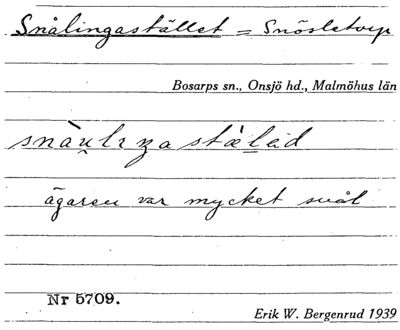 Snålingastället = Snösletorp
Bosarps sn., Onsjö hd., Malmöhus län
snàu̯lɪŋastæ̀lɛ̀d
ägaren var mycket snål
Nr 5709.
Erik W. Bergenrud 1939